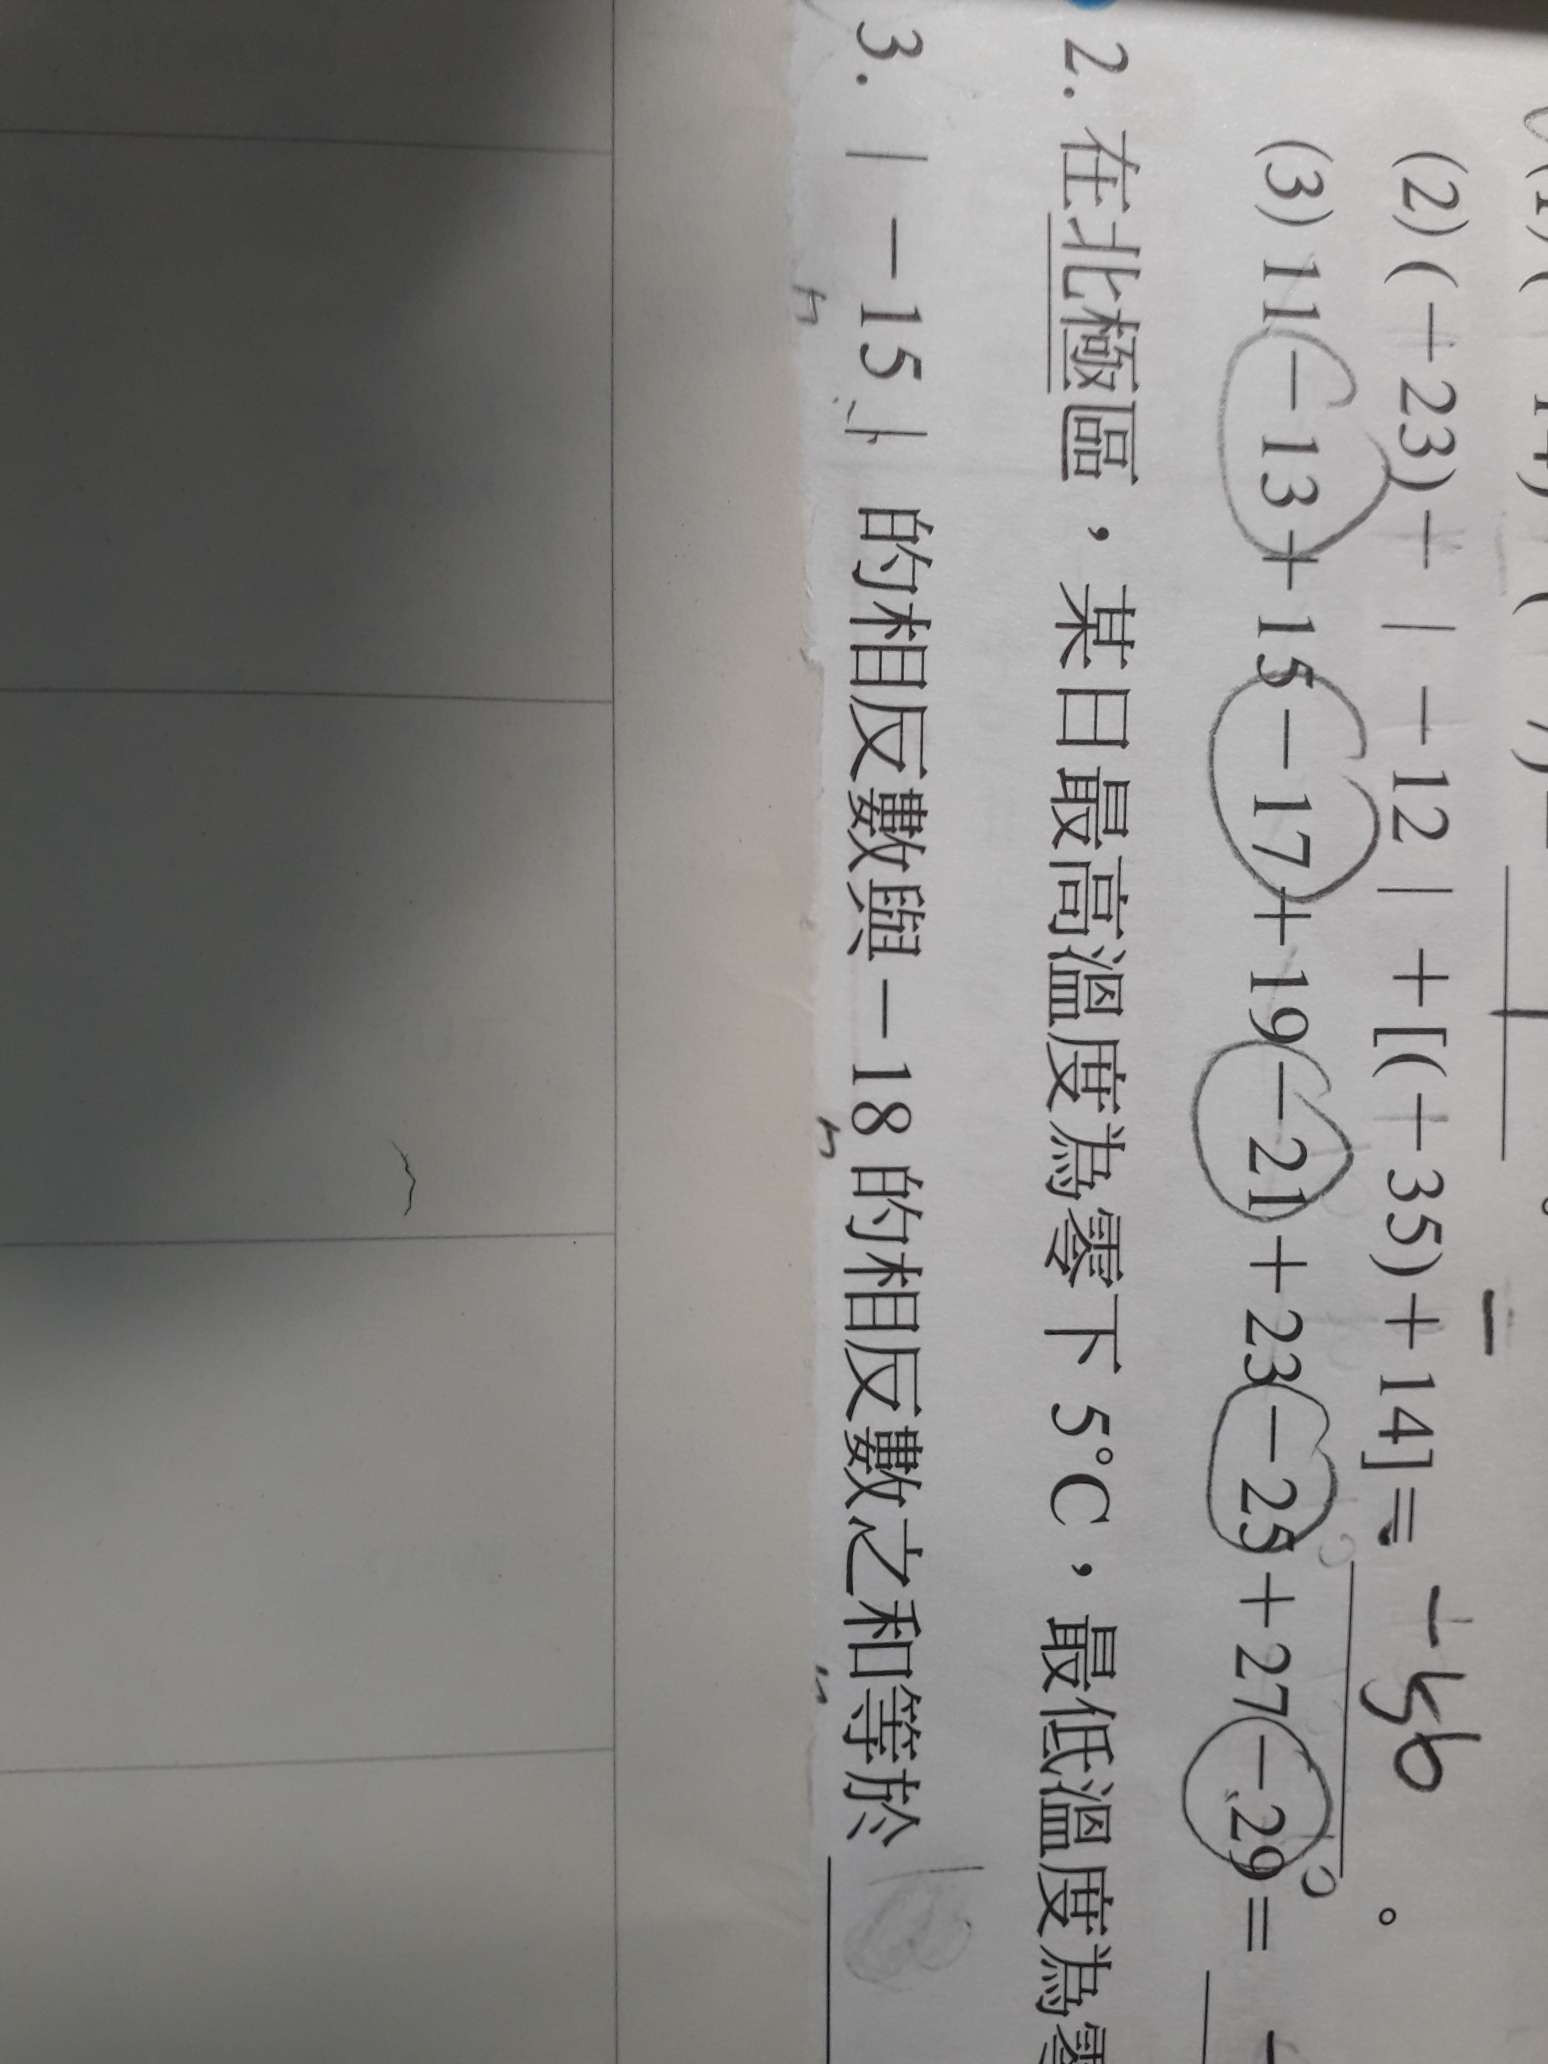 (2) (－23)－｜－12｜＋[(－35)＋14]＝ －56 。
(3) 11－13＋15－17＋19－21＋23－25＋27－29＝
2. 在北極區，某日最高溫度為零下 5°C，最低溫度為零
3. ｜－15｜的相反數與－18 的相反數之和等於